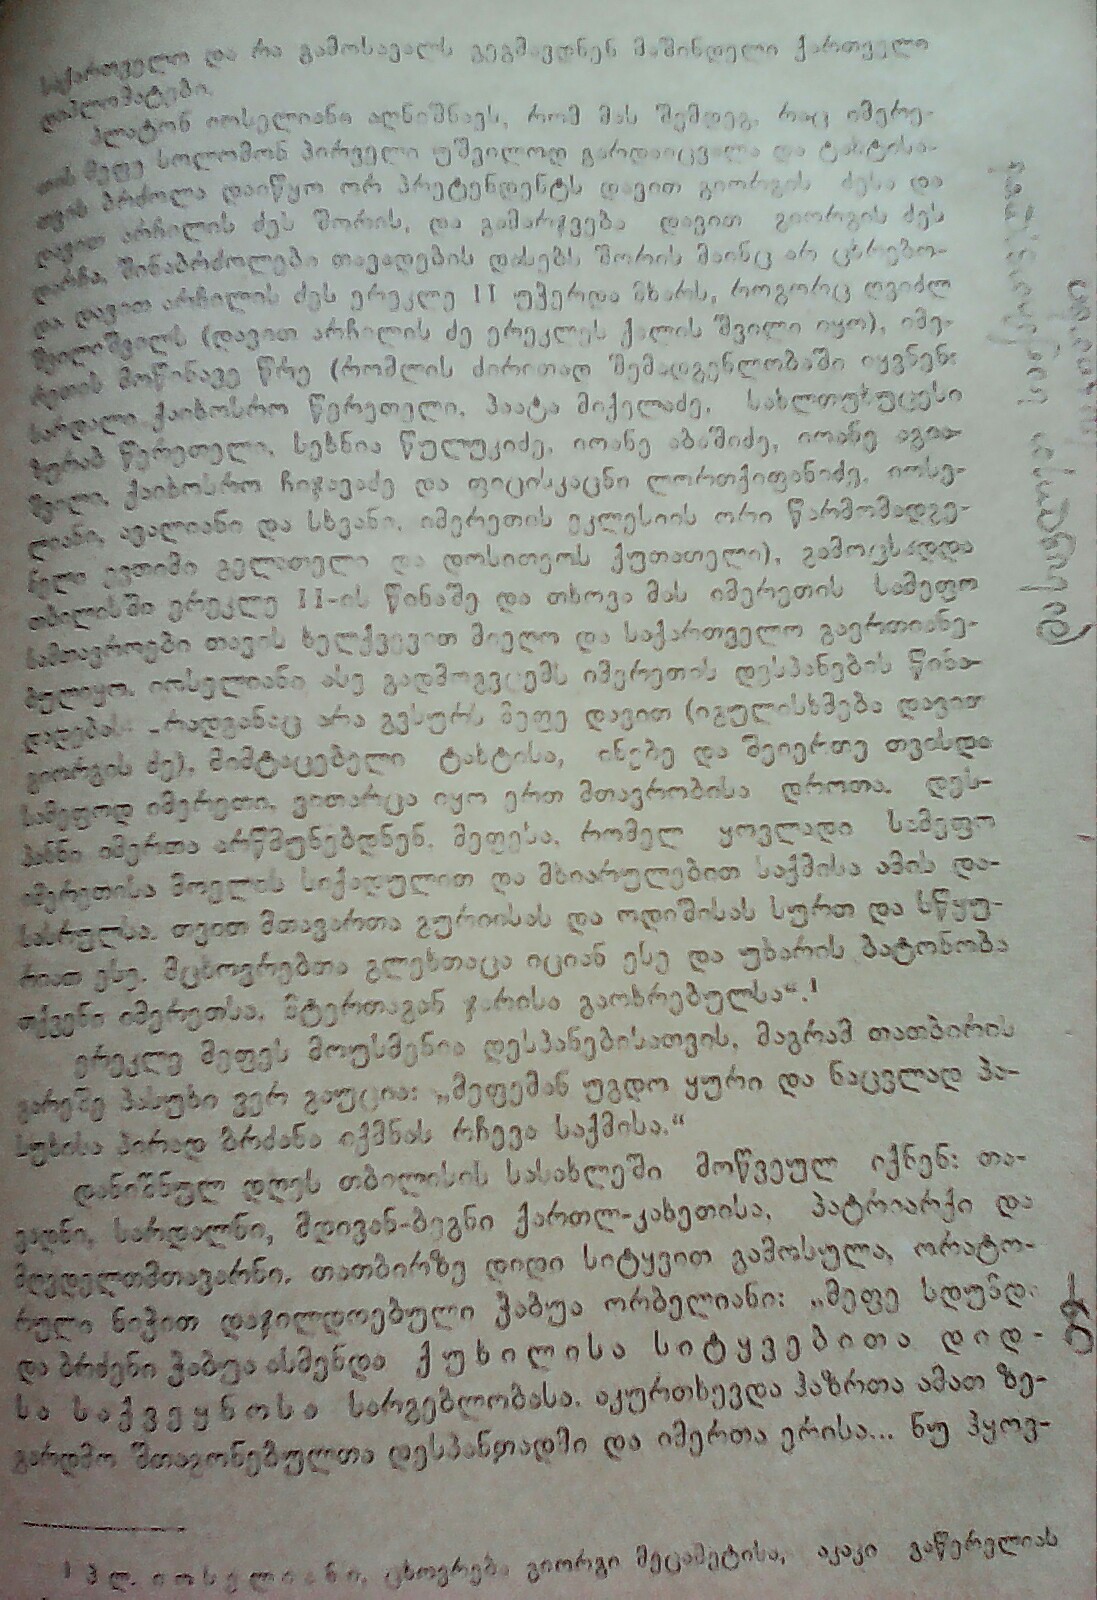 საქართველო და რა გამოსავალს გეგმავდნენ მაშინდელი ქართველი
დიპლომატები.
პლატონ იოსელიანი აღნიშნავს, რომ მას შემდეგ, რაც იმერე-
თის მეფე სოლომონ პირველი უშვილოდ გარდაიცვალა და ტახტისა-
თვის ბრძოლა დაიწყო ორ პრეტენდენტს დავით გიორგის ძესა და
დავით არჩილის ძეს შორის, და გამარჯვება დავით გიორგის ძეს
დარჩა, შინაბრძოლები თავადების დასებს შორის მაინც არ ცხრებო-
და დავით არჩილის ძეს ერეკლე II უჭერდა მხარს, როგორც ღვიძლ
შვილიშვილს (დავით არჩილის ძე ერეკლეს ქალის შვილი იყო), იმე-
რეთის მოწინავე წრე (რომლის ძირითად შემადგენლობაში იყვნენ:
სარდალი ქაიხოსრო წერეთელი, პაატა მიქელაძე, სახლთუხუცესი
ზურაბ წერეთელი, სეხნია წულუკიძე, იოანე აბაშიძე, იოანე აგია-
შვილი, ქაიხოსრო ჩიჯავაძე და ფიცისკაცნი ლორთქიფანიძე, იოსე-
ლიანი, ავალიანი და სხვანი, იმერეთის ეკლესიის ორი წარმომადგე-
ნელი ევთიმი გელათელი და დოსითეოს ქუთათელი), გამოცხადდა
თბილისში ერეკლე II-ის წინაშე და თხოვა მას იმერეთის სამეფო
სამთავროები თავის ხელქვევით მიეღო და საქართველო გაერთიანე-
ბულიყო. იოსელიანი ასე გადმოგვცემს იმერეთის დესპანების წინა-
დადებას: „რადგანაც არა გვსურს მეფე დავით (იგულისხმება დავით
გიორგის ძე), მიმტაცებელი ტახტისა, ინებე და შეიერთე თვისდა
სამეფოდ იმერეთი, ვითარცა იყო ერთ მთავრობისა დროთა. დეს-
პანნი იმერთა არწმუნებდნენ, მეფესა, რომელ ყოვლადი სამეფო
იმერეთისა მოელის სიქადულით და მხიარულებით საქმისა ამის და-
სასრულსა. თვით მთავართა გურიისას და ოდიშისას სურთ და სწყუ-
რიათ ესე. მცხოვრებთა გლეხთაცა იციან ესე და უხარის ბატონობა
თქვენი იმერეთსა, მტერთაგან ჯარისა გაოხრებულსა“.¹
ერეკლე მეფეს მოუსმენია დესპანებისათვის, მაგრამ თათბირის
გარეშე პასუხი ვერ გაუცია: „მეფემან უგდო ყური და ნაცვლად პა-
სუხისა პირად ბრძანა იქმნას რჩევა საქმისა.“
დანიშნულ დღეს თბილისის სასახლეში მოწვეულ იქნენ: თა-
ვადნი, სარდალნი, მდივან-ბეგნი ქართლ-კახეთისა, პატრიარქი და
მღვდელთმთავარნი. თათბირზე დიდი სიტყვით გამოსულა, ორატო-
რული ნიჭით დაჯილდოებული ჭაბუა ორბელიანი: „მეფე სდუმდ.
და ბრძენი ჭაბუა ასმენდა ქუხილისა სიტყვებითა დიდ-
სა საქვეყნოსა სარგებლობასა. აკურთხევდა ჰაზრთა ამათ ზე-
გარდმო შთაგონებულთა დესპანთადმი და იმერთა ერისა... ნუ ჰყოვ-
¹ პლ. იოსელიანი, ცხოვრება გიორგი მეცამეტისა, აკაკი გაწერელიას